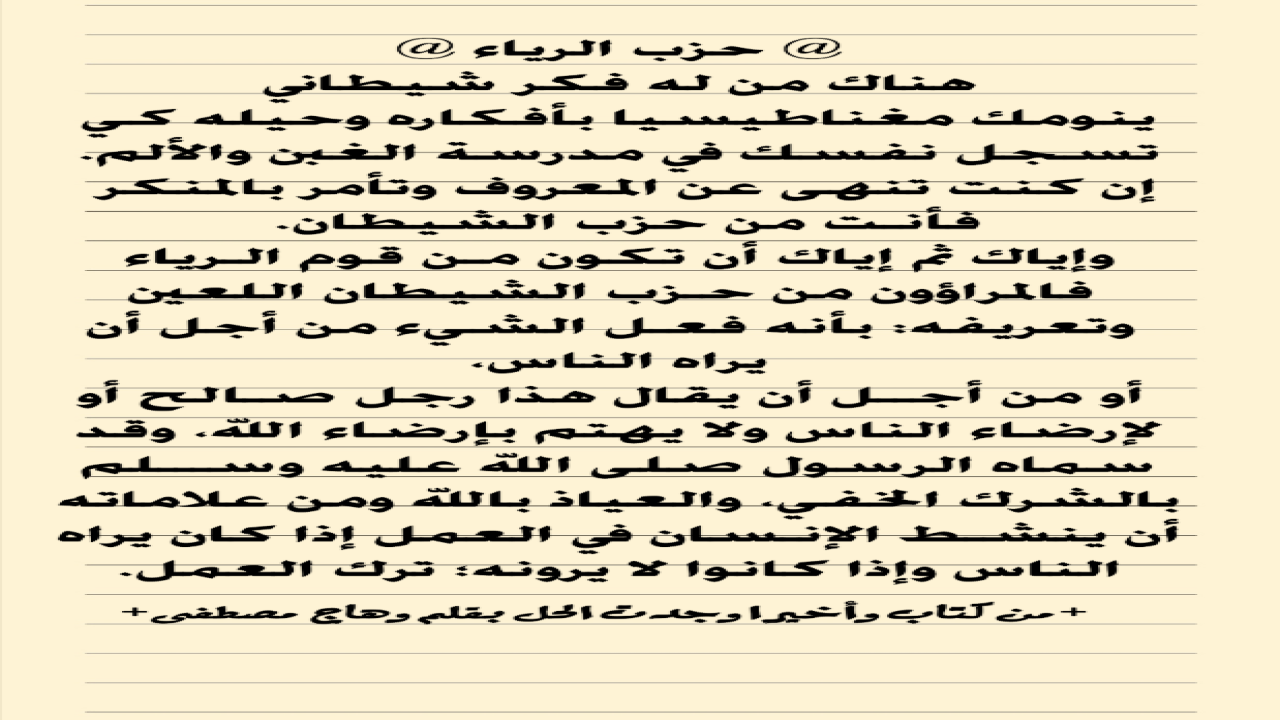 @ حزب الرياء @
هناك من له فكر شيطاني
ينومك مغناطيسيا بأفكاره وحيله كي
تسجل نفسك في مدرسة الغبن والألم.
إن كنت تنهى عن المعروف وتأمر بالمنكر
فأنت من حزب الشيطان.
وإياك ثم إياك أن تكون من قوم الرياء
فالمراؤون من حزب الشيطان اللعين
وتعريفه: بأنه فعل الشيء من أجل أن
يراه الناس.
أو من أجل أن يقال هذا رجل صالح أو
لإرضاء الناس ولا يهتم بإرضاء الله. وقد
سماه الرسول صلى الله عليه وسلم
بالشرك الخفي. والعياذ بالله ومن علاماته
أن ينشط الإنسان في العمل إذا كان يراه
الناس وإذا كانوا لا يرونه؛ ترك العمل.
+من كتاب وأخيرا وجدت الحل بقلم وهاج مصطفى+